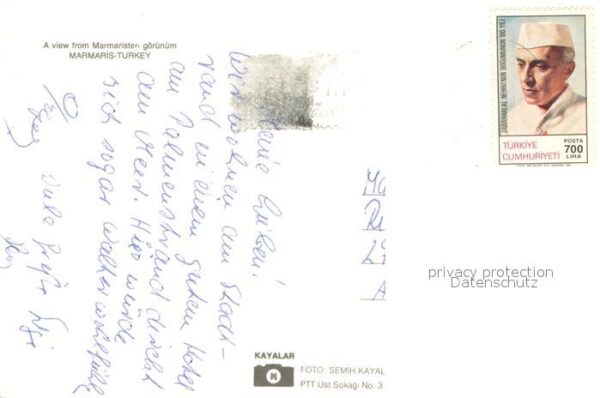 A view from Marmaristen görünüm
MARMARIS-TURKEY
JAWAHARLAL NEHRU'NUN DOĞUMUNUN 100. YILI
POSTA
TÜRKİYE
CUMHURİYETİ
700
LİRA
Meine Lieben!
Wir wohnen am Stadt-
rand in einem guten Hotel
am Palmenstrand direkt
am Meer. Hier würde
sich sogar Walter wohlfühlen
Viele Grüße
privacy protection
Datenschutz
KAYALAR
FOTO: SEMİH KAYAL
PTT Ust Sokağı No. 3